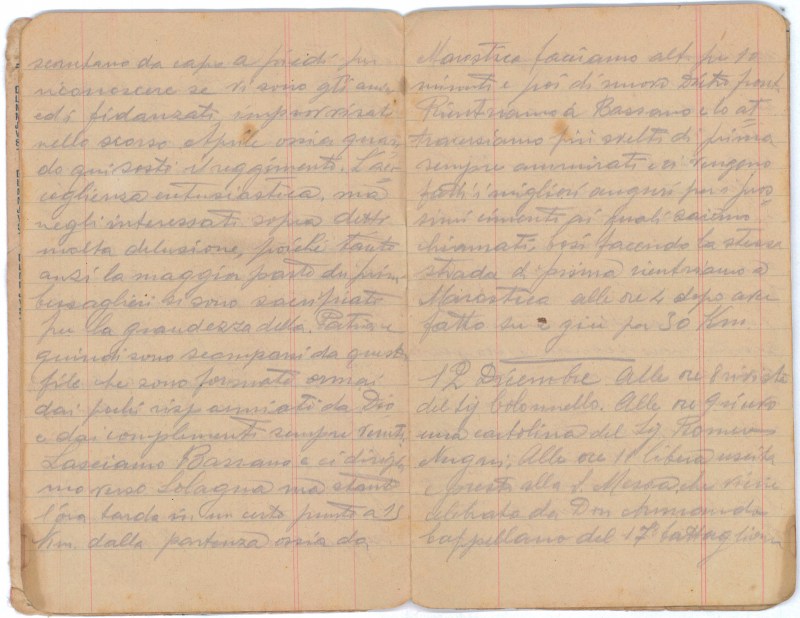 scantano da capo a piedi per
riconoscere se vi sono gli ami
ed i fidanzati improvvisati
nello scorso Aprile ossia quan
do qui sostò il reggimento. L'ac
coglienza entusiastica, ma
negli interessati sopra detti
molta delusione, poichè tanti
anzi la maggior parte dei primi
bersaglieri si sono sacrificati
per la grandezza della Patria e
quindi sono scomparsi da queste
file che sono formate ormai
dai pochi risparmiati da Dio
e dai complementi sempre venuti
Lasciamo Bassano e ci dirigia
mo verso Solagna ma stante
l'ora tarda in un certo punto a 15
Km. dalla partenza ossia da
Marostica facciamo alt per 10
minuti e poi di nuovo Dietro front
Rientriamo a Bassano e lo at
traversiamo più svelti di prima
sempre ammirati e ci vengono
fatti i migliori auguri per i pros
simi cimenti ai quali saremo
chiamati, così facendo la stessa
strada di prima rientriamo a
Marostica alle ore 4 dopo aver
fatto su e giù per 30 Km
12 Dicembre Alle ore 8 rivista
del Sig Colonnello. Alle ore 9 ricevo
una cartolina del Sig
Alle ore 10 libera uscita
e presto alla S. Messa, che viene
celebrata da Don Annunzio
Cappellano del 17° battaglione